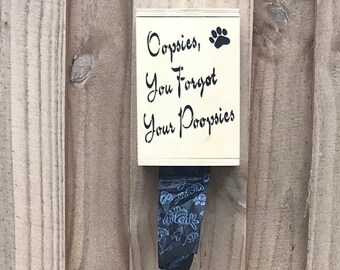 Oopsies,
You Forgot
Your Poopsies